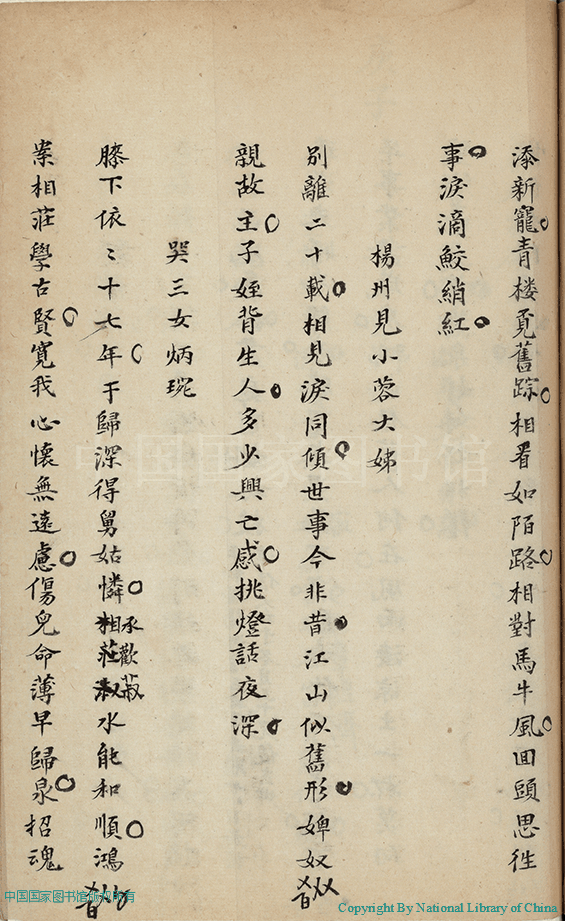 添新寵青楼覓舊踪相看如陌路相對馬牛風囬頭思徃
事淚滴鮫綃紅
楊州見小蓉大娣
別離二十載相見淚同傾世事今非昔江山似舊形婢奴皆
親故主子姪背生人多少興亡感挑燈話夜深
哭三女炳琬
膝下依〻十七年于歸深得舅姑憐承歡菽水能和順鴻
案相莊學古賢寬我心懷無遠慮傷兒命薄早歸泉招魂
中国国家图书馆
中国国家图书馆版权所有
Copyright By National Library of China